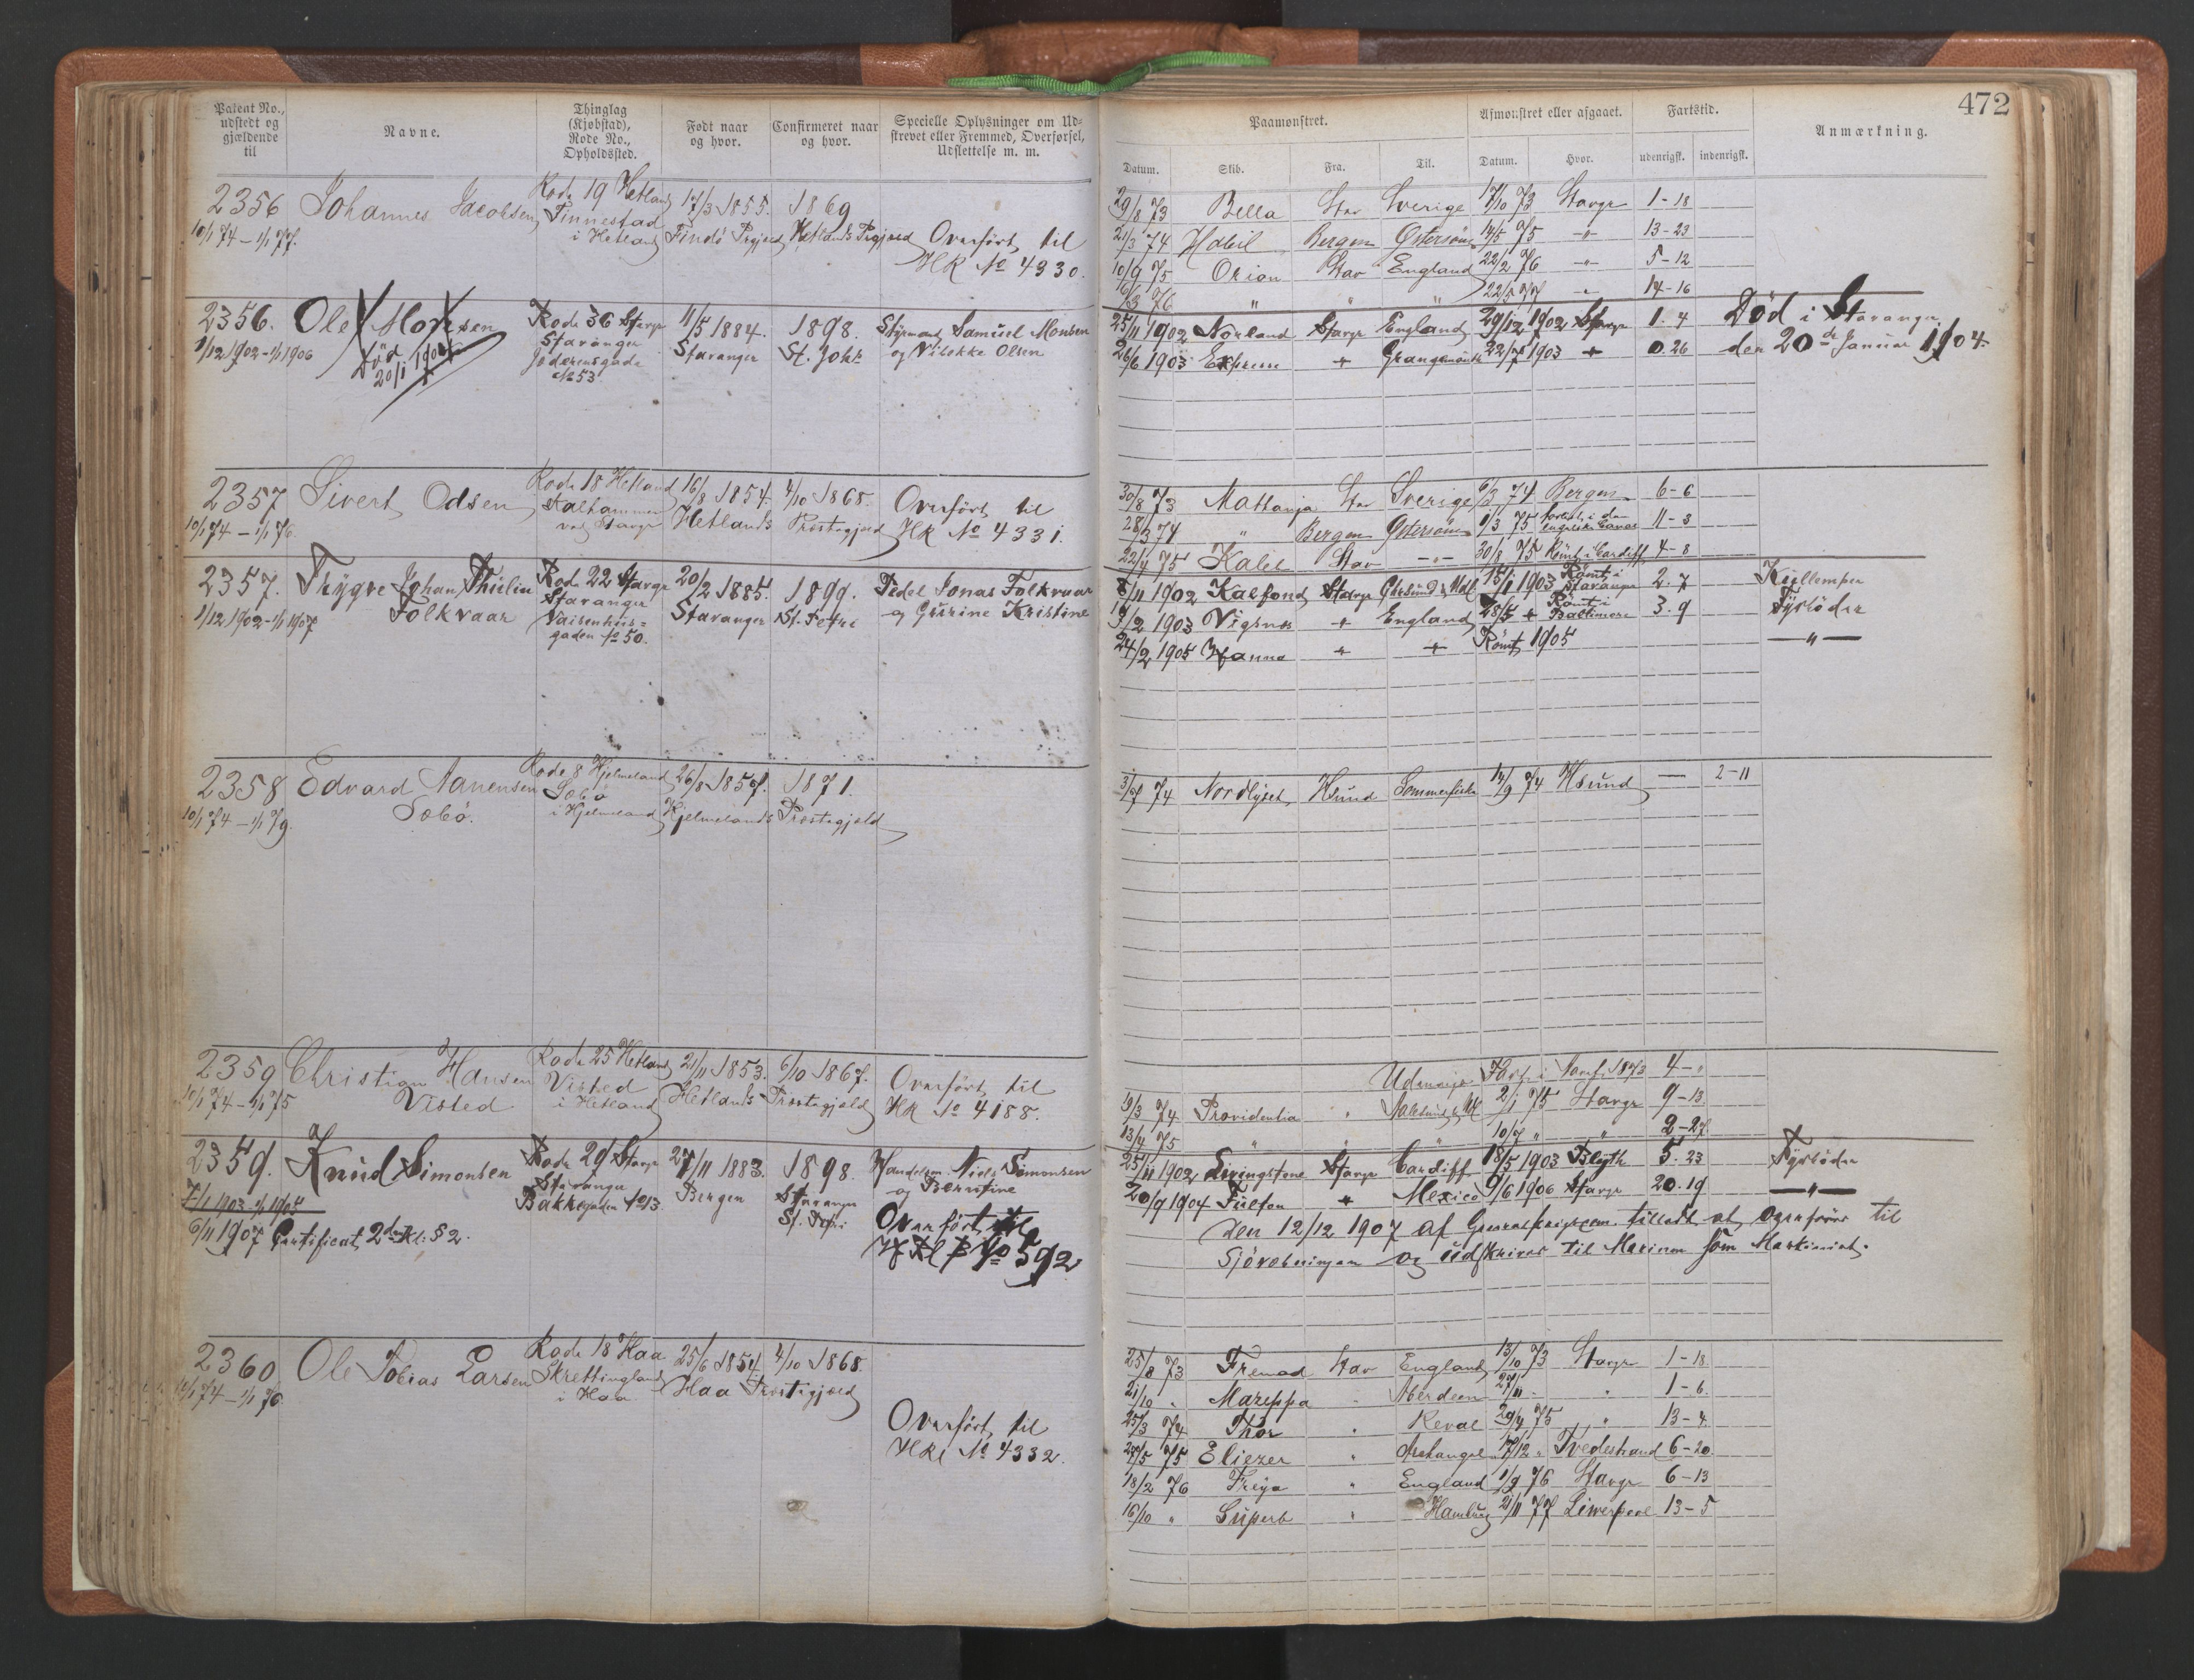 472
Patent No., udstedt og gjældende til
Navne.
Thinglag (Kjøbstad), Rode No., Opholdssted.
Født naar og hvor.
Confirmeret naar og hvor.
Specielle Oplysninger om Udskrevet eller Fremmed, Overførsel, Udslettelse m. m.
Paamønstret.
Afmønstret eller afgaaet.
Fartstid.
Anmærkning.
Datum. Skib. Fra. Til. Datum. Hvor. udenrigsk. indenrigsk.
2356 Johannes Jacobsen Rode 19 Hetland 17/3 1855. 1869
10/1 74 – 1/1 77. Tinnestad
i Hetland Findö Prgjeld Hetlands Prgjeld Overført til
HR No 4330.
29/8 73 Bella Stav Sverige 17/10 73 Stavgr 1-18
21/3 74 Bergen Østersöen 14/5 75 -"- 13-23
10/9 75 Orion Stav England 22/2 76 -"- 5-12
6/3 76 " " " 22/5 77 14-16
2356. Ole Monsen Rode 36 Stavgr 11/5 1884. 1898. Styrmand Samuel Monsen
1/12 1902 - 1/1 1906 Stavanger Stavanger St. Joh: og Olsen
Död 20/1 1904 Jöderensgade
No 53.
25/11 1902 Norland Stavgr England 29/12 1902 Stavgr 1. 4 Död i Stavanger
26/6 1903 Express + 22/7 1903 + 0. 26 den 20de Januar 1904.
2357 Sivert Odsen Rode 18 Hetland 16/8 1854. 4/10 1868. Overført til
10/1 74 – 1/1 76. ved Stavgr Hetlands Prestegjeld HR No 4331.
30/8 73 Mattanja Stav Sverige 6/3 74 Bergen 6-6
28/3 74 " Bergen Østersöen 1/3 75 11-3
22/4 75 Kaleb Stav -"- 30/8 75 Römt i Cardiff 4-8
2357. Trygve Johan Thulin Rode 22 Stavgr 20/2 1885. 1899. Pedel Jonas Folkvaar
1/12 1902 - 1/1 1907 Folkvaar Stavanger Stavanger St. Petri og Gurine Kristine
Vaisenhus=
gaden No 50.
8/11 1902 Kalfond Stavgr 15/1 1903 Römt i Stavanger 2. 7 Kullemper
1903 Vigsnes + England 28/5 + Römt i Baltimore 3. 9 Fyröder
24/2 1905 Hanna + + Römt 1905 — " —
2358 Edvard Aanensen Rode 8 Hjelmeland 26/8 1857. 1871.
10/1 74 – 1/1 79. Sobö. Sobö
i Hjelmeland Hjelmelands Prestegjeld
3/7 74 Nordlyset Hsund Sommerfiske 14/9 74 Hsund — 2-11
2359 Christian Hansen Rode 25 Hetland 21/11 1853. 6/10 1867. Overført til
10/1 74 – 1/1 75 Visted Visted
i Hetland Hetlands Prestegjeld HR No 4188.
Udenrigs Fart i 1873 4-"
19/3 74 Providentia " 2/1 75 Stavgr 9-13.
13/4 75 " " " 10/7 " " 2-27.
2359. Knud Simonsen Rode 29 Stavgr 27/11 1883. 1898. Handelsm. Niels Simonsen
7/1 1903 - 1/1 1905 Stavanger Bergen Stavanger og Berntine
Bakkegaden No 13 St. Petri
6/11 1907 Certificat 2den Kl: § 2. Overført til
No 592
25/11 1902 Livingstone Stavgr Cardiff 18/5 1903 Blyth 5. 23 Fyröder
20/9 1904 Fulton + Mexico 9/6 1906 Stavgr 20. 19 — " —
Den 12/12 1907 af tilladt at overföres til
Sjörulleringen og udskrives til Marinen som Maskinist.
2360 Ole Tobias Larsen Rode 18 Haa 25/6 1854 4/10 1868.
10/1 74 – 1/1 76. Skrettingland
i Haa Haa Prestegjeld
Overført til
HR No 4332.
25/8 73 Fremad Stav England 13/10 73 Stavgr 1-18.
21/10 " Mazeppa " Aberdeen 27/11 - " 1-6.
25/3 74 Thor " Reval 29/4 75 " 13-4.
27/5 75 Eliezer " Archangel 17/12 " Tvedestrand 6-20.
18/2 76 Freya " England 1/9 76 Stavgr 6-13
16/10 " Superb " Hamburg 21/11 77 Liverpool 13-5